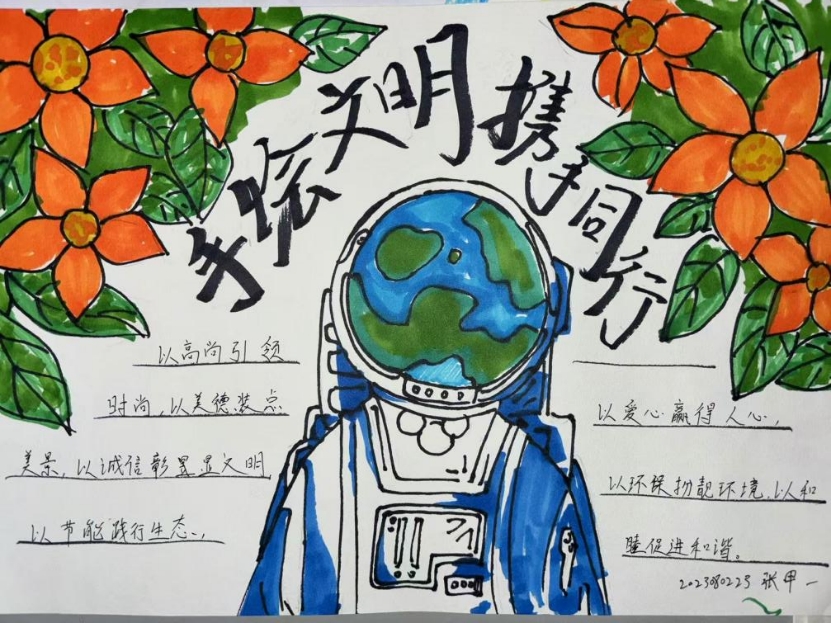 手绘文明携手同行
以高尚引领
时尚，以美德装点
美景，以诚信彰显文明
以节能践行生态、，
以爱心赢得人心，
以环保扮靓环境，以和
睦促进和谐。
2023080223 张甲一